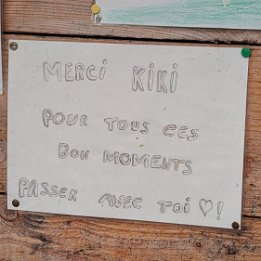 MERCI KIKI
POUR TOUS CES
BON MOMENTS
PASSER AVEC TOI ♡!